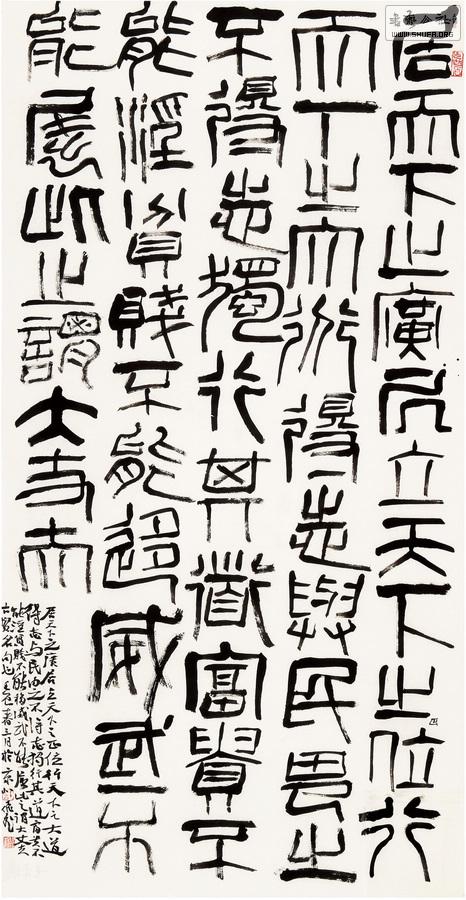 居天下之廣居立天下之正位行
天下之大道得志與民由之
不得志獨行其道富貴不
能淫貧賤不能移威武不
能屈此之謂大丈夫
居天下之廣居立天下之正位行天下之大道
得志与民由之不得志独行其道富貴不
能淫貧賤不能移威武不能屈此之謂大丈夫
古賢名句也壬辰春三月於京
WWW.SHUFA.ORG